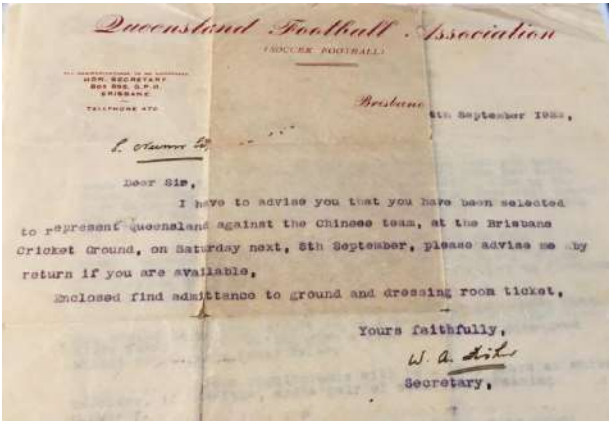 Queensland Football Association
(SOCCER FOOTBALL)
ALL COMMUNICATIONS TO BE ADDRESSED
HON. SECRETARY
BOX 595, G.P.O.
BRISBANE
TELEPHONE
Brisbane
th September
Dear Sir,
I have to advise you that you have been selected
to represent Queensland against the Chinese team, at the Brisbane
Cricket Ground, on Saturday next, 8th September, please advise me by
return if you are available,
Enclosed find admittance to ground and dressing room ticket,
Yours faithfully,
W. A.
Secretary,